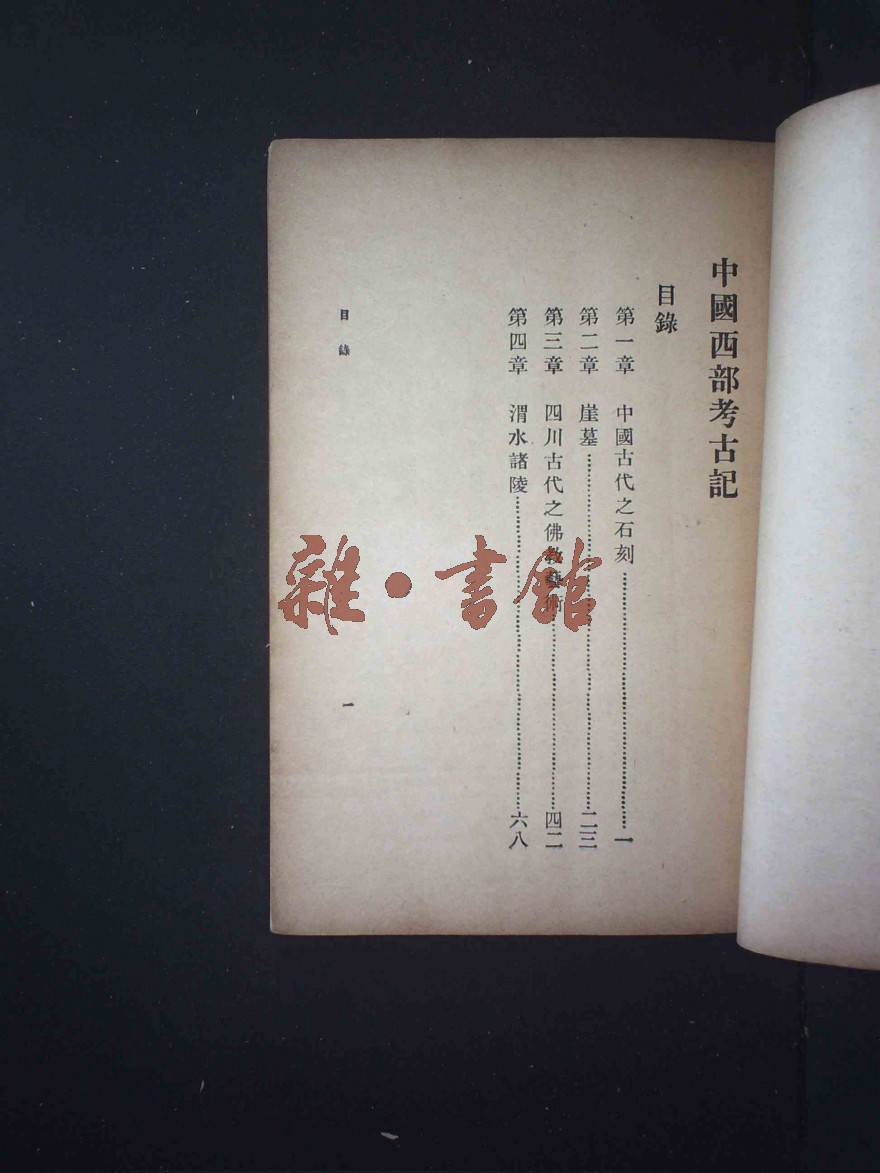 中國西部考古記
目錄
第一章 中國古代之石刻……一
第二章 崖墓……二三
第三章 四川古代之佛教藝術……四二
第四章 渭水諸陵……六八
目錄 一
雜·書館